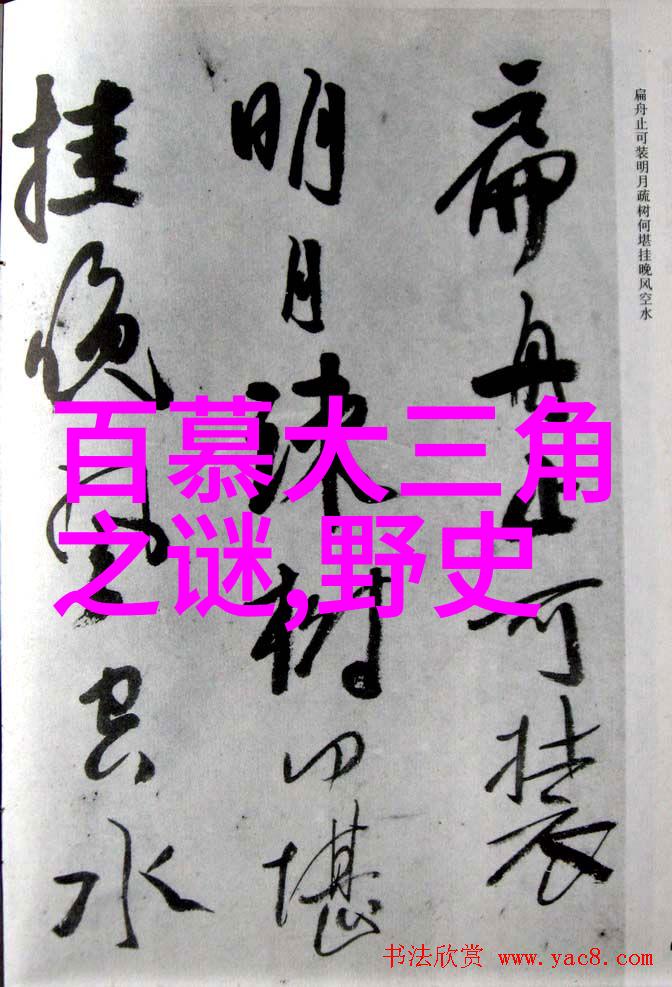 扁舟止可装
明月疏树何堪
挂晚风空水
扁舟止可装明月疏树何堪挂晚风空水
百慕大三角
之谜,野史
书法欣赏 www.yac8.com